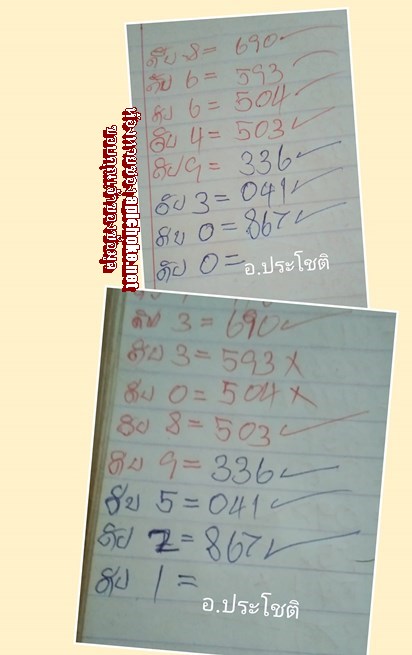 ดับ 8 = 690 ✓
ดับ 6 = 593 ✓
ดับ 6 = 504 ✓
ดับ 4 = 503 ✓
ดับ 9 = 336 ✓
ดับ 3 = 041 ✓
ดับ 0 = 867 ✓
ดับ 0 =
อ.ประโชติ
ดับ 3 = 690 ✓
ดับ 3 = 593 X
ดับ 0 = 504 X
ดับ 8 = 503 ✓
ดับ 9 = 336 ✓
ดับ 5 = 041 ✓
ดับ 2 = 867 ✓
ดับ 1 =
อ.ประโชติ